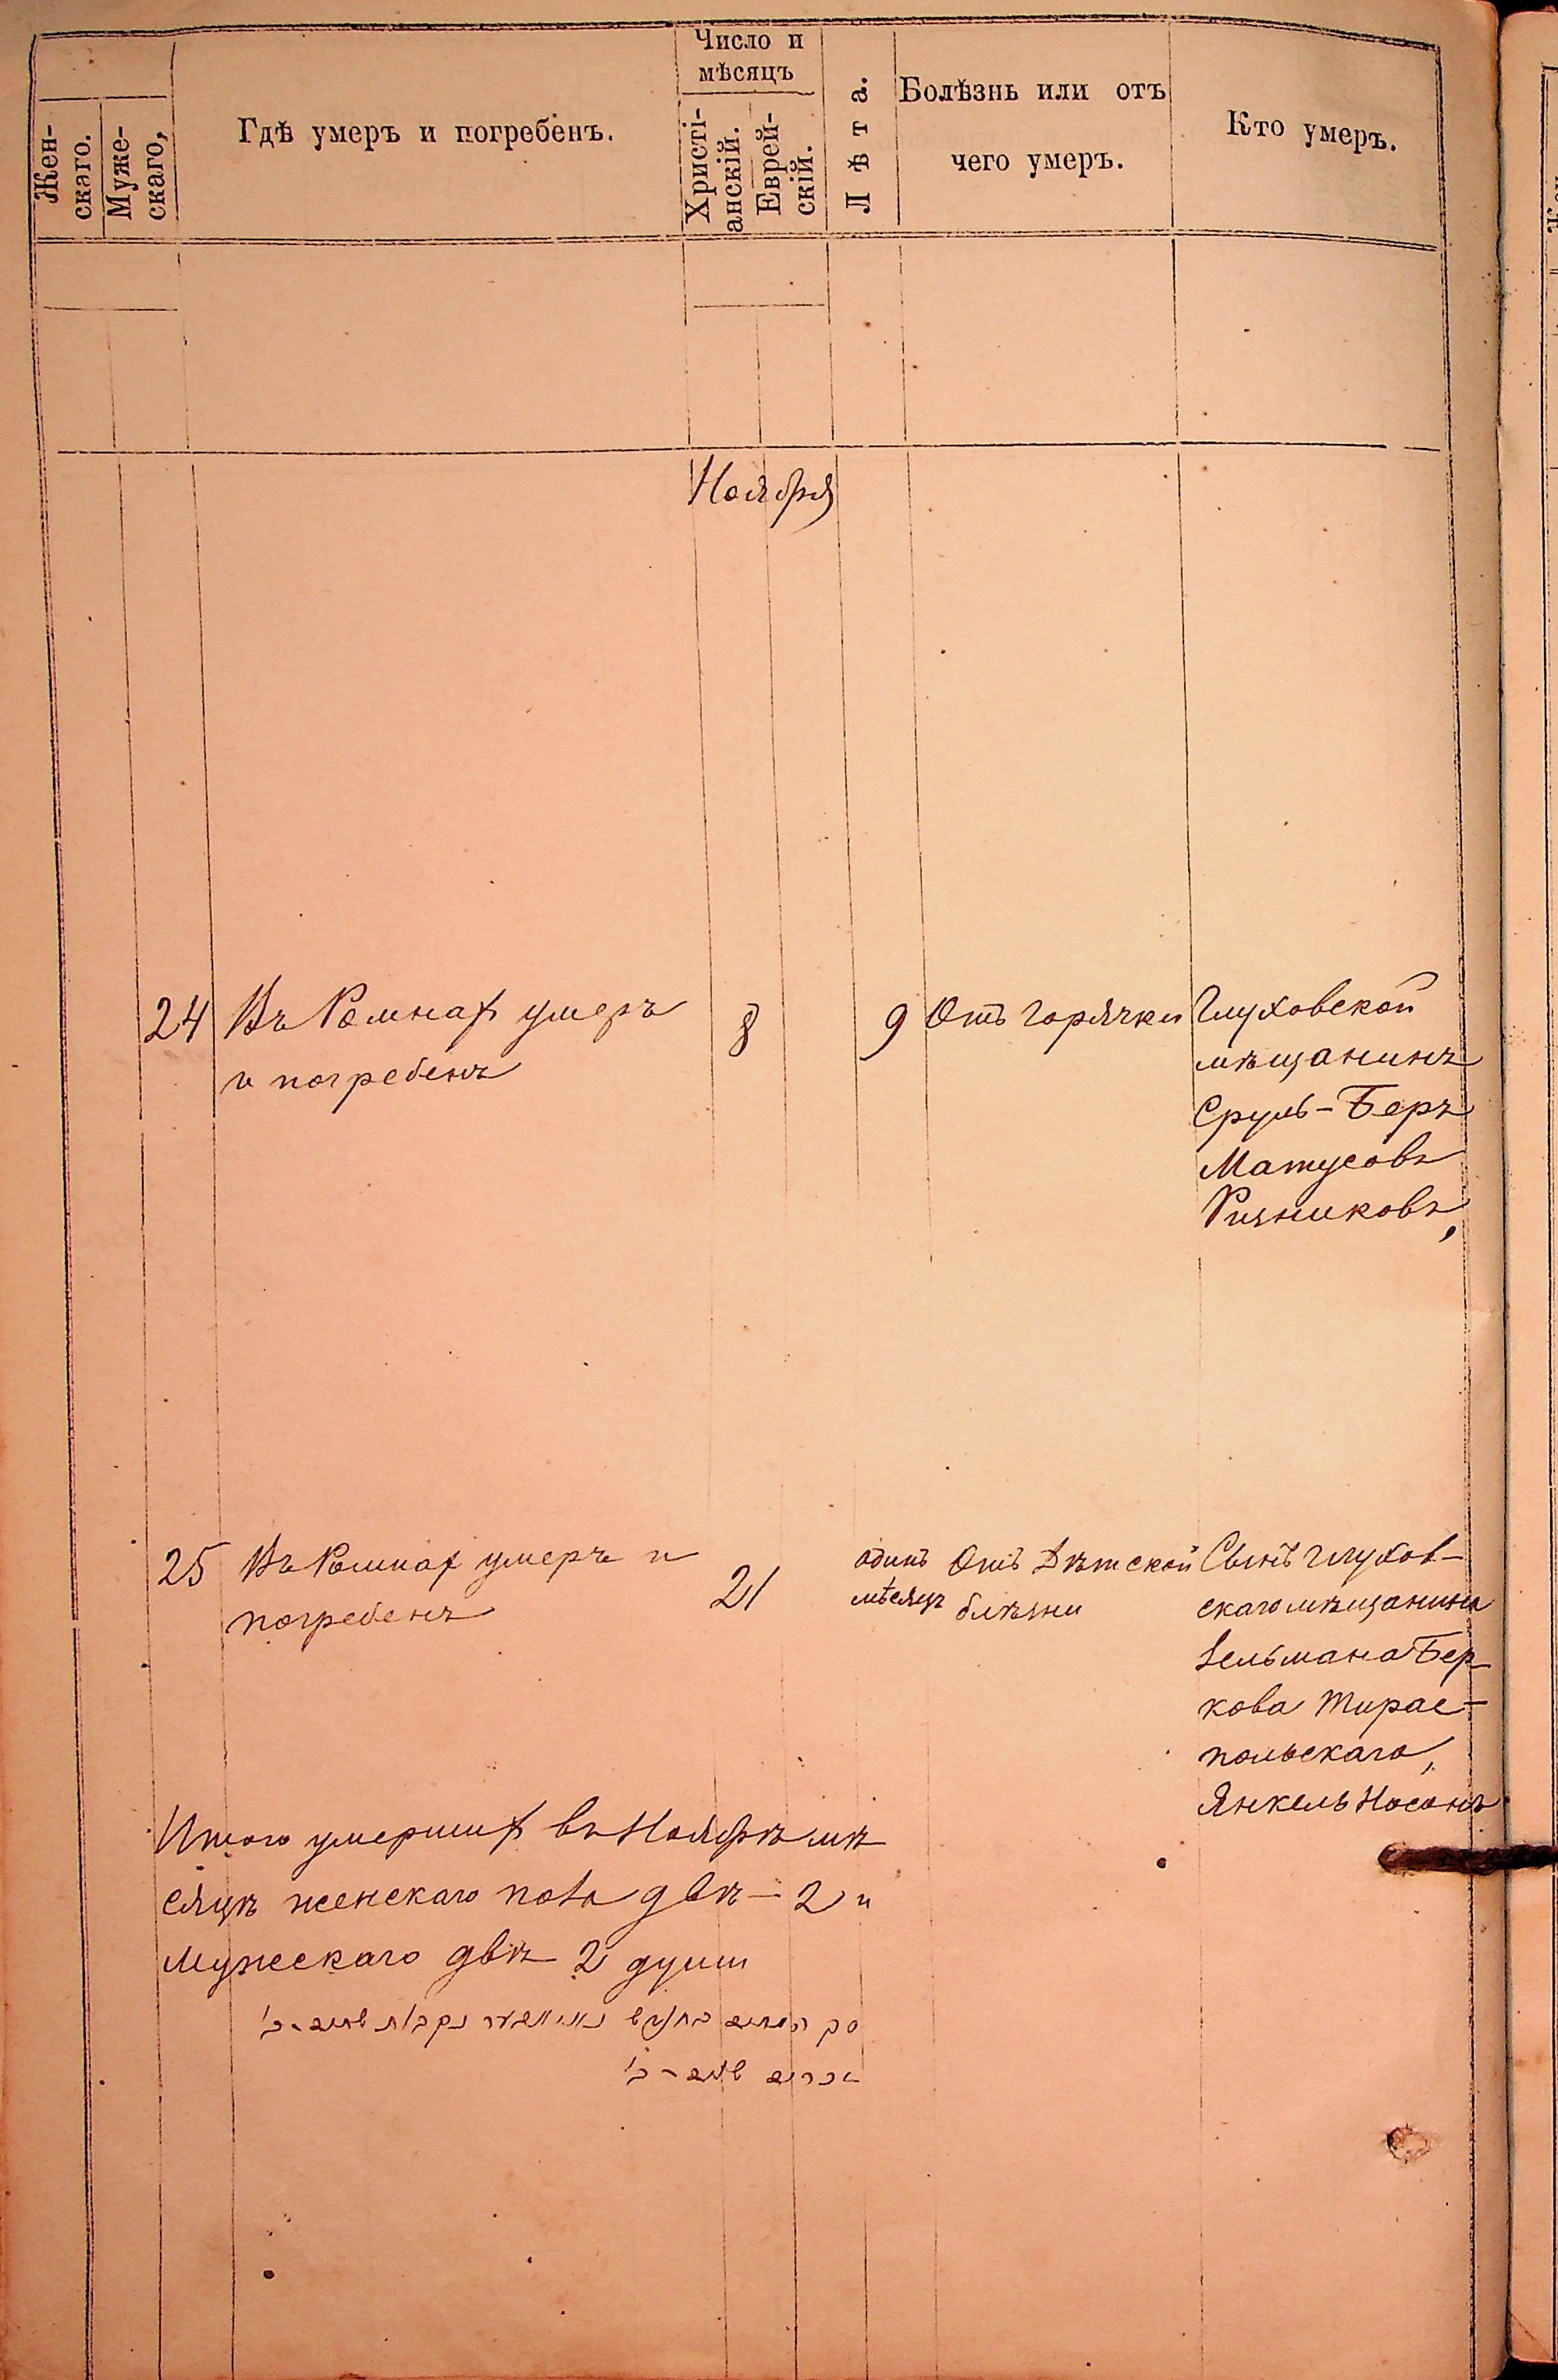 Число и
мѣсяцъ
Жен-
скаго.
Муже-
скаго,
Гдѣ умеръ и погребенъ.
Христі-
анскій.
Еврей-
скій.
Лѣта.
Болѣзнь или отъ
чего умеръ.
Кто умеръ.
Ноября
24 Въ Ромнах умеръ
и погребенъ
8
9
Отъ горячки
Глуховской
мѣщанинъ
Сруль-Беръ
Матусовъ
Ризниковъ,
25 Въ Ромнах умеръ и
погребенъ
21
одинъ
мѣсяцъ
Отъ Дѣтской
блѣзни
Сынъ глухов-
скаго мѣщанина
Зельмана Бер-
кова Тирас-
польскаго,
Янкель Носонъ
Итого умерших въ Ноябрѣ мѣ
сяцѣ женскаго пола двѣ - 2 и
мужескаго двѣ 2 души